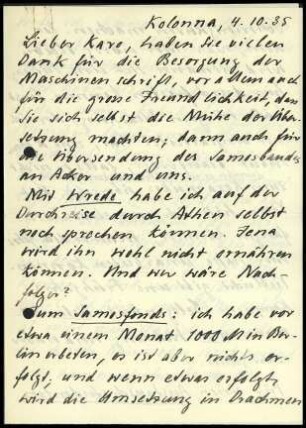 Kolonna, 4.10.35
Lieber Karo, haben Sie vielen
Dank für die Besorgung der
Maschinenschrift, vor allem auch
für die grosse Freundlichkeit, dass
Sie sich selbst die Mühe der Über-
setzung machten; dann auch für
die Übersendung des Samosbandes
an Acker und uns.
Mit Wrede habe ich auf der
Durchreise durch Athen selbst
noch sprechen können. Jena
wird ihn wohl nicht ernähren
können. Und wer wäre Nach-
folger?
Zum Samosfonds: ich habe vor
etwa einem Monat 1000 M in Ber-
lin erbeten, es ist aber nichts er-
folgt; und wenn etwas erfolgt,
wird die Umsetzung in Drachmen